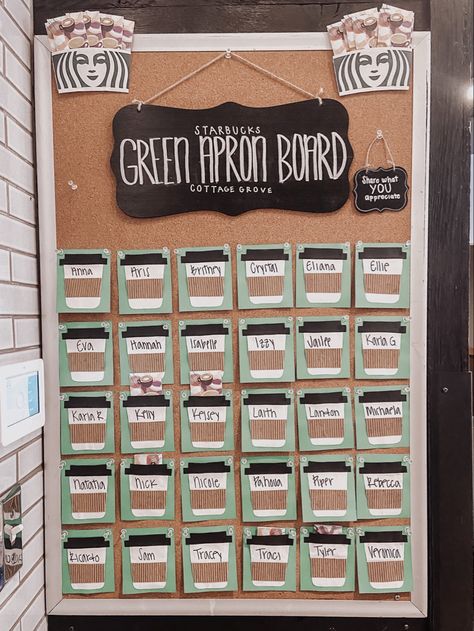 STARBUCKS
GREEN APRON BOARD
COTTAGE GROVE
Share what
YOU
appreciate
Anna Aris Britney Crystal Eliana Ellie
Eva Hannah Isabelle Izzy Jailee Karla G
Karla R Kelly Kelsey Laith Landon Michaela
Natalia Nick Nicole Pahoua Piper Rebecca
Ricardo Sam Tracey Traci Tyler Veronica